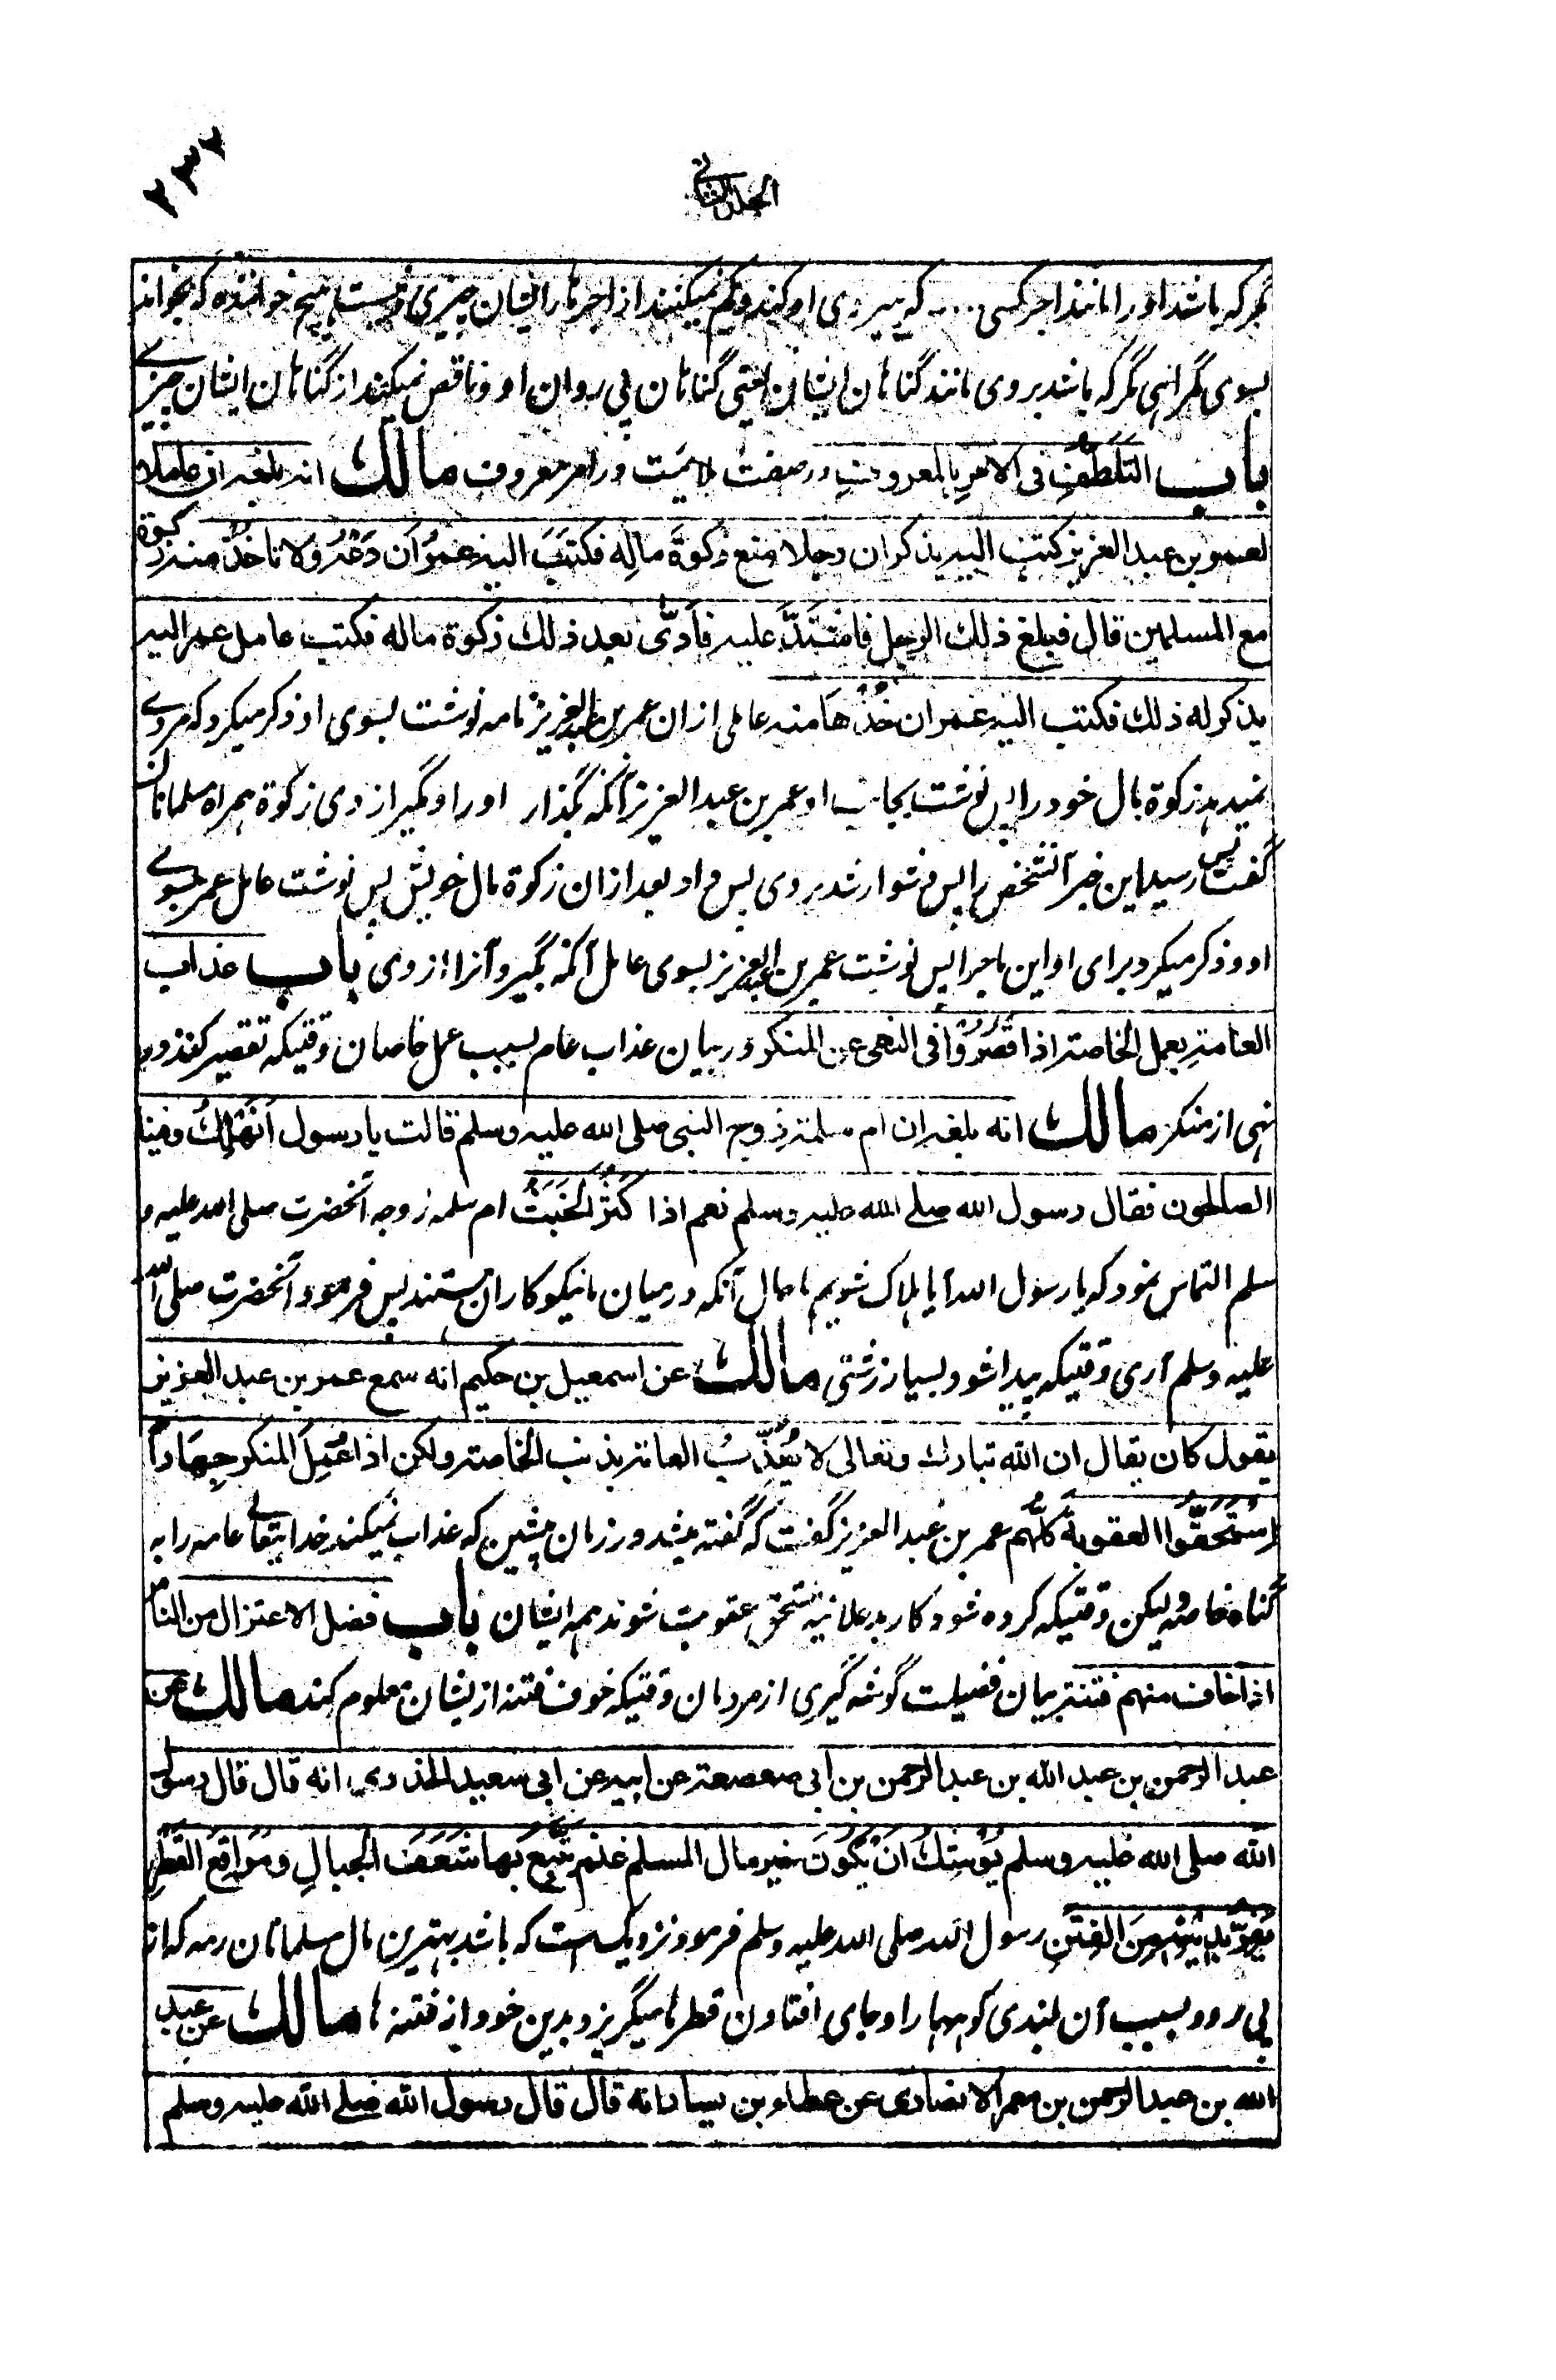 ۲۳۲
الجلد الثانی
مگر که باشد اورا مانند اجر کسی ... که پیروی او کند و کم نمیکنند از اجرها را ایشان چیزی و نیست هیچ خواننده که بخواند
بسوی گمراهی مگر که باشد بروی مانند گناهان ایشان یعنی گناهان پی روان او و ناقص نمیکند از گناهان ایشان چیزے
باب التَلَطُّفِ فی الامرِ بالمعروفِ در صفت ملایمت در امر معروف مالك انه بلغه ان عاملا
لعمر بن عبد العزیز کتب الیه یذکر ان رجلا منع زکوةَ مالِه فکتَبَ الیه عمرُ اَن دَعْهُ ولا تأخُذْ منه زکوة
مع المسلمین قال فبلغ ذلك الرجل فاشتَدَّ علیه فاَدّٰی بعد ذلك زکوة ماله فکتب عامل عمر الیه
یذکر له ذلك فکتب الیه عمر ان خُذْهَا منه عاملی ازان عمر بن عبد العزیز نامه نوشت بسوی او ذکر میکرد که مردے
نمیدهد زکوة مال خود را پس نوشت بجانب او عمر بن عبد العزیز آنکه بگذار اورا و مگیر از وی زکوة همراه مسلمانان
گفت پس رسید این خبر آنشخص را پس دشوار شد بروی پس داد بعد ازان زکوة مال خویش پس نوشت عامل عمر بسوے
او و ذکر میکرد برای او این ماجرا پس نوشت عمر بن عبد العزیز بسوی عامل آنکه بگیر و آنرا از وی باب عذاب
العامة بعمل الخاصة اذا قَصَّرُوْا فی النهی عن المنکر در بیان عذاب عام بسبب عمل خاصان وقتیکه تقصیر کنند در
نهی از منکر مالك انه بلغه ان ام سلمة زوج النبی صلی الله علیه وسلم قالت یا رسول اَنَهْلِكُ وفینا
الصالحون فقال رسول الله صلے الله علیه وسلم نعم اذا کَثُرَ الخَبَثُ ام سلمه زوجه آنحضرت صلی الله علیه و
سلم التماس نمود که یا رسول الله آیا هلاک شویم ما حال آنکه در میان ما نیکوکاران هستند پس فرمود آنحضرت صلی الله
علیه وسلم آری وقتیکه پیدا شود بسیار زشتی مالك عن اسمعیل بن حکیم انه سمع عمر بن عبد العزیز
یقول کان یقال ان الله تبارك وتعالی لا یُعَذِّبُ العامة بذنب الخاصة ولکن اذا عُمِلَ المنکر جِهَاراً
اِسْتَحَقُّوا العقوبةَ کلُّهم عمر بن عبد العزیز گفت که گفته میشد در زمان پیشین که عذاب نمیکند خدایتعالے عامه را به
گناه خاصه و لیکن وقتیکه کرده شود کار بد علانیه مستحق عقوبت شوند همه ایشان باب فضل الاعتزال من الناس
اذا خاف منهم فتنة بیان فضیلت گوشه گیری از مردمان وقتیکه خوف فتنه از یشان معلوم کند مالك عن
عبد الرحمن بن عبد الله بن عبد الرحمن بن ابی صعصعة عن ابیه عن ابی سعید الخدری انه قال قال رسول
الله صلی الله علیه وسلم یُوْشِكُ اَنْ یَّکُوْنَ خیر مال المسلم غنم یَتَّبِعُ بها شَعَفَ الجبالِ ومَوَاقِعَ القَطْرِ
یَفِرُّ بِدِیْنِهٖ مِنَ الفِتَنِ رسول الله صلی الله علیه وسلم فرمود نزدیک است که باشد بهترین مال مسلمانان رمه که از
پی رود بسبب آن بلندی کوهها را و جای افتادن قطرها میگریزد بدین خود از فتنه ها مالك عن عبد
الله بن عبد الرحمن بن معمر الانصاری عن عطاء بن یسار انه قال قال رسول الله صلے الله علیه وسلم